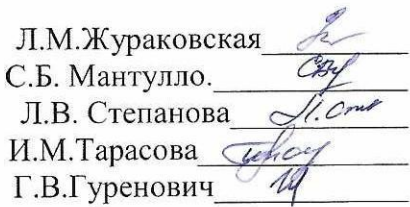 Л.М.Жураковская
С.Б. Мантулло.
Л.В. Степанова
И.М.Тарасова
Г.В.Гуренович